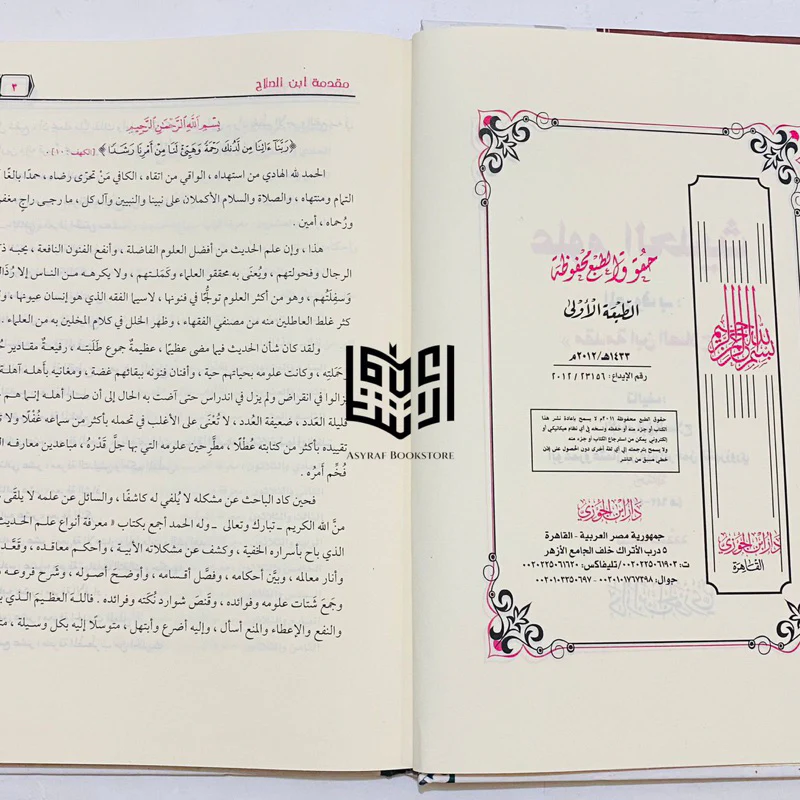 حقوق الطبع محفوظة
الطبعة الأولى
١٤٣٣هـ/٢٠١٢م
رقم الإيداع: ٢٠١٢/٢٣١٥٦
حقوق الطبع محفوظة ٢٠١١م لا يسمح بإعادة نشر هذا
الكتاب أو جزء منه أو حفظه ونسخه في أي نظام ميكانيكي أو
إلكتروني يمكن من استرجاع الكتاب أو جزء منه
ولا يسمح بترجمته إلى أي لغة أخرى دون الحصول على إذن
خطي مسبق من الناشر
دار ابن الجوزي
جمهورية مصر العربية - القاهرة
٥ درب الأتراك خلف الجامع الأزهر
ت: ٠٠٢٠٢٢٥٠٦١٩٠٢ /تليفاكس: ٠٠٢٠٢٢٥٠٦١٦٢٠
جوال: ٠٠٢٠١٠١٧٦٧٣٩٨ - ٠٠٢٠١٠٢٣٥٠٦٩٧
بسم الله الرحمن الرحيم
دار ابن الجوزي
القاهرة
مقدمة ابن الصلاح
٣
بِسْمِ اللَّهِ الرَّحْمَنِ الرَّحِيمِ
﴿رَبَّنَا ءَاتِنَا مِن لَّدُنكَ رَحْمَةً وَهَيِّئْ لَنَا مِنْ أَمْرِنَا رَشَدًا﴾ [الكهف: ١٠].
الحمد لله الهادي من استهداه ، الواقي من اتقاه ، الكافي مَنْ تحرَّى رضاه ، حمدًا بالغًا
التمام ومنتهاه ، والصلاة والسلام الأكملان على نبينا والنبيين وآل كل ، ما رجى راجٍ مغفرته
ورُحماه ، أمين .
هذا ، وإن علم الحديث من أفضل العلوم الفاضلة ، وأنفع الفنون النافعة ، يحبه
الرجال وفحولتهم ، ويُعنَى به محققو العلماء وكَمَلتهم ، ولا يكرهه من الناس إلا
وسِفِلَتُهم ، وهو من أكثر العلوم تولُّجًا في فنونها ، لاسيما الفقه الذي هو إنسان عيونها ،
كثر غلط العاطلين منه من مصنفي الفقهاء ، وظهر الخلل في كلام المخلين به من العلماء .
ولقد كان شأن الحديث فيما مضى عظيمًا ، عظيمةً جموع طَلَبَته ، رفيعةً مقادير
حَمَلته ، وكانت علومه بحياتهم حية ، وأفنان فنونه ببقائهم غضة ، ومغانيه بأهله آهلة
يزالوا في انقراض ولم يزل في اندراس حتى آضت به الحال إلى أن صار أهله إنما هم
قليلة العَدد ، ضعيفة العُدد ، لا تُعْنَى على الأغلب في تحمله بأكثر من سماعه غُفْلًا ولا
تقييده بأكثر من كتابته عُطْلًا ، مطَّرِحين علومه التي بها جلَّ قَدْرُه ، مباعدين معارفه
فُخِّم أمرُه .
فحين كاد الباحث عن مشكله لا يُلفي له كاشفًا ، والسائل عن علمه لا يلقى
منَّ الله الكريم - تبارك وتعالى - وله الحمد أجمع بكتاب « معرفة أنواع علم الحديث
الذي باح بأسراره الخفية ، وكشف عن مشكلاته الأبية ، وأحكم معاقده ، وقَعَّد
وأنار معالمه ، وبيَّن أحكامه ، وفصَّل أقسامه ، وأوضح أصوله ، وشَرح فروعه
وجَمعَ شَتات علومه وفوائده ، وقَنصَ شوارد نُكَته وفرائده . فاللهَ العظيمَ الذي
والنفع والإعطاء والمنع أسأل ، وإليه أضرع وأبتهل ، متوسلًا إليه بكل وسيلة ،
ASYRAF BOOKSTORE